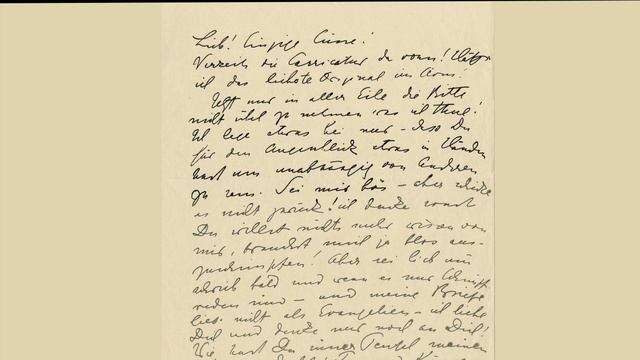 Lieb! Einzige Eine!
Verzeih die Carricatur da vorn! Hätte
ich das liebste Original im Arm!
Jetzt nur in aller Eile die Bitte
nicht übel zu nehmen was ich thue!
Ich lege etwas bei nur – dass Du
für den Augenblick etwas in Händen
hast um unabhängig von Anderen
zu sein. Sei mir bös – aber schicke
es nicht zurück! ich denke sonst
Du willst nichts mehr wissen von
mir, brauchst mich ja blos aus-
zuschimpfen! Aber sei lieb und
schreib bald und wenn es nur Schimpf
reden sind – und meine Briefe
lies nicht als Evangelien – ich liebe
Dich und denke nur noch an Dich!
Du meinen